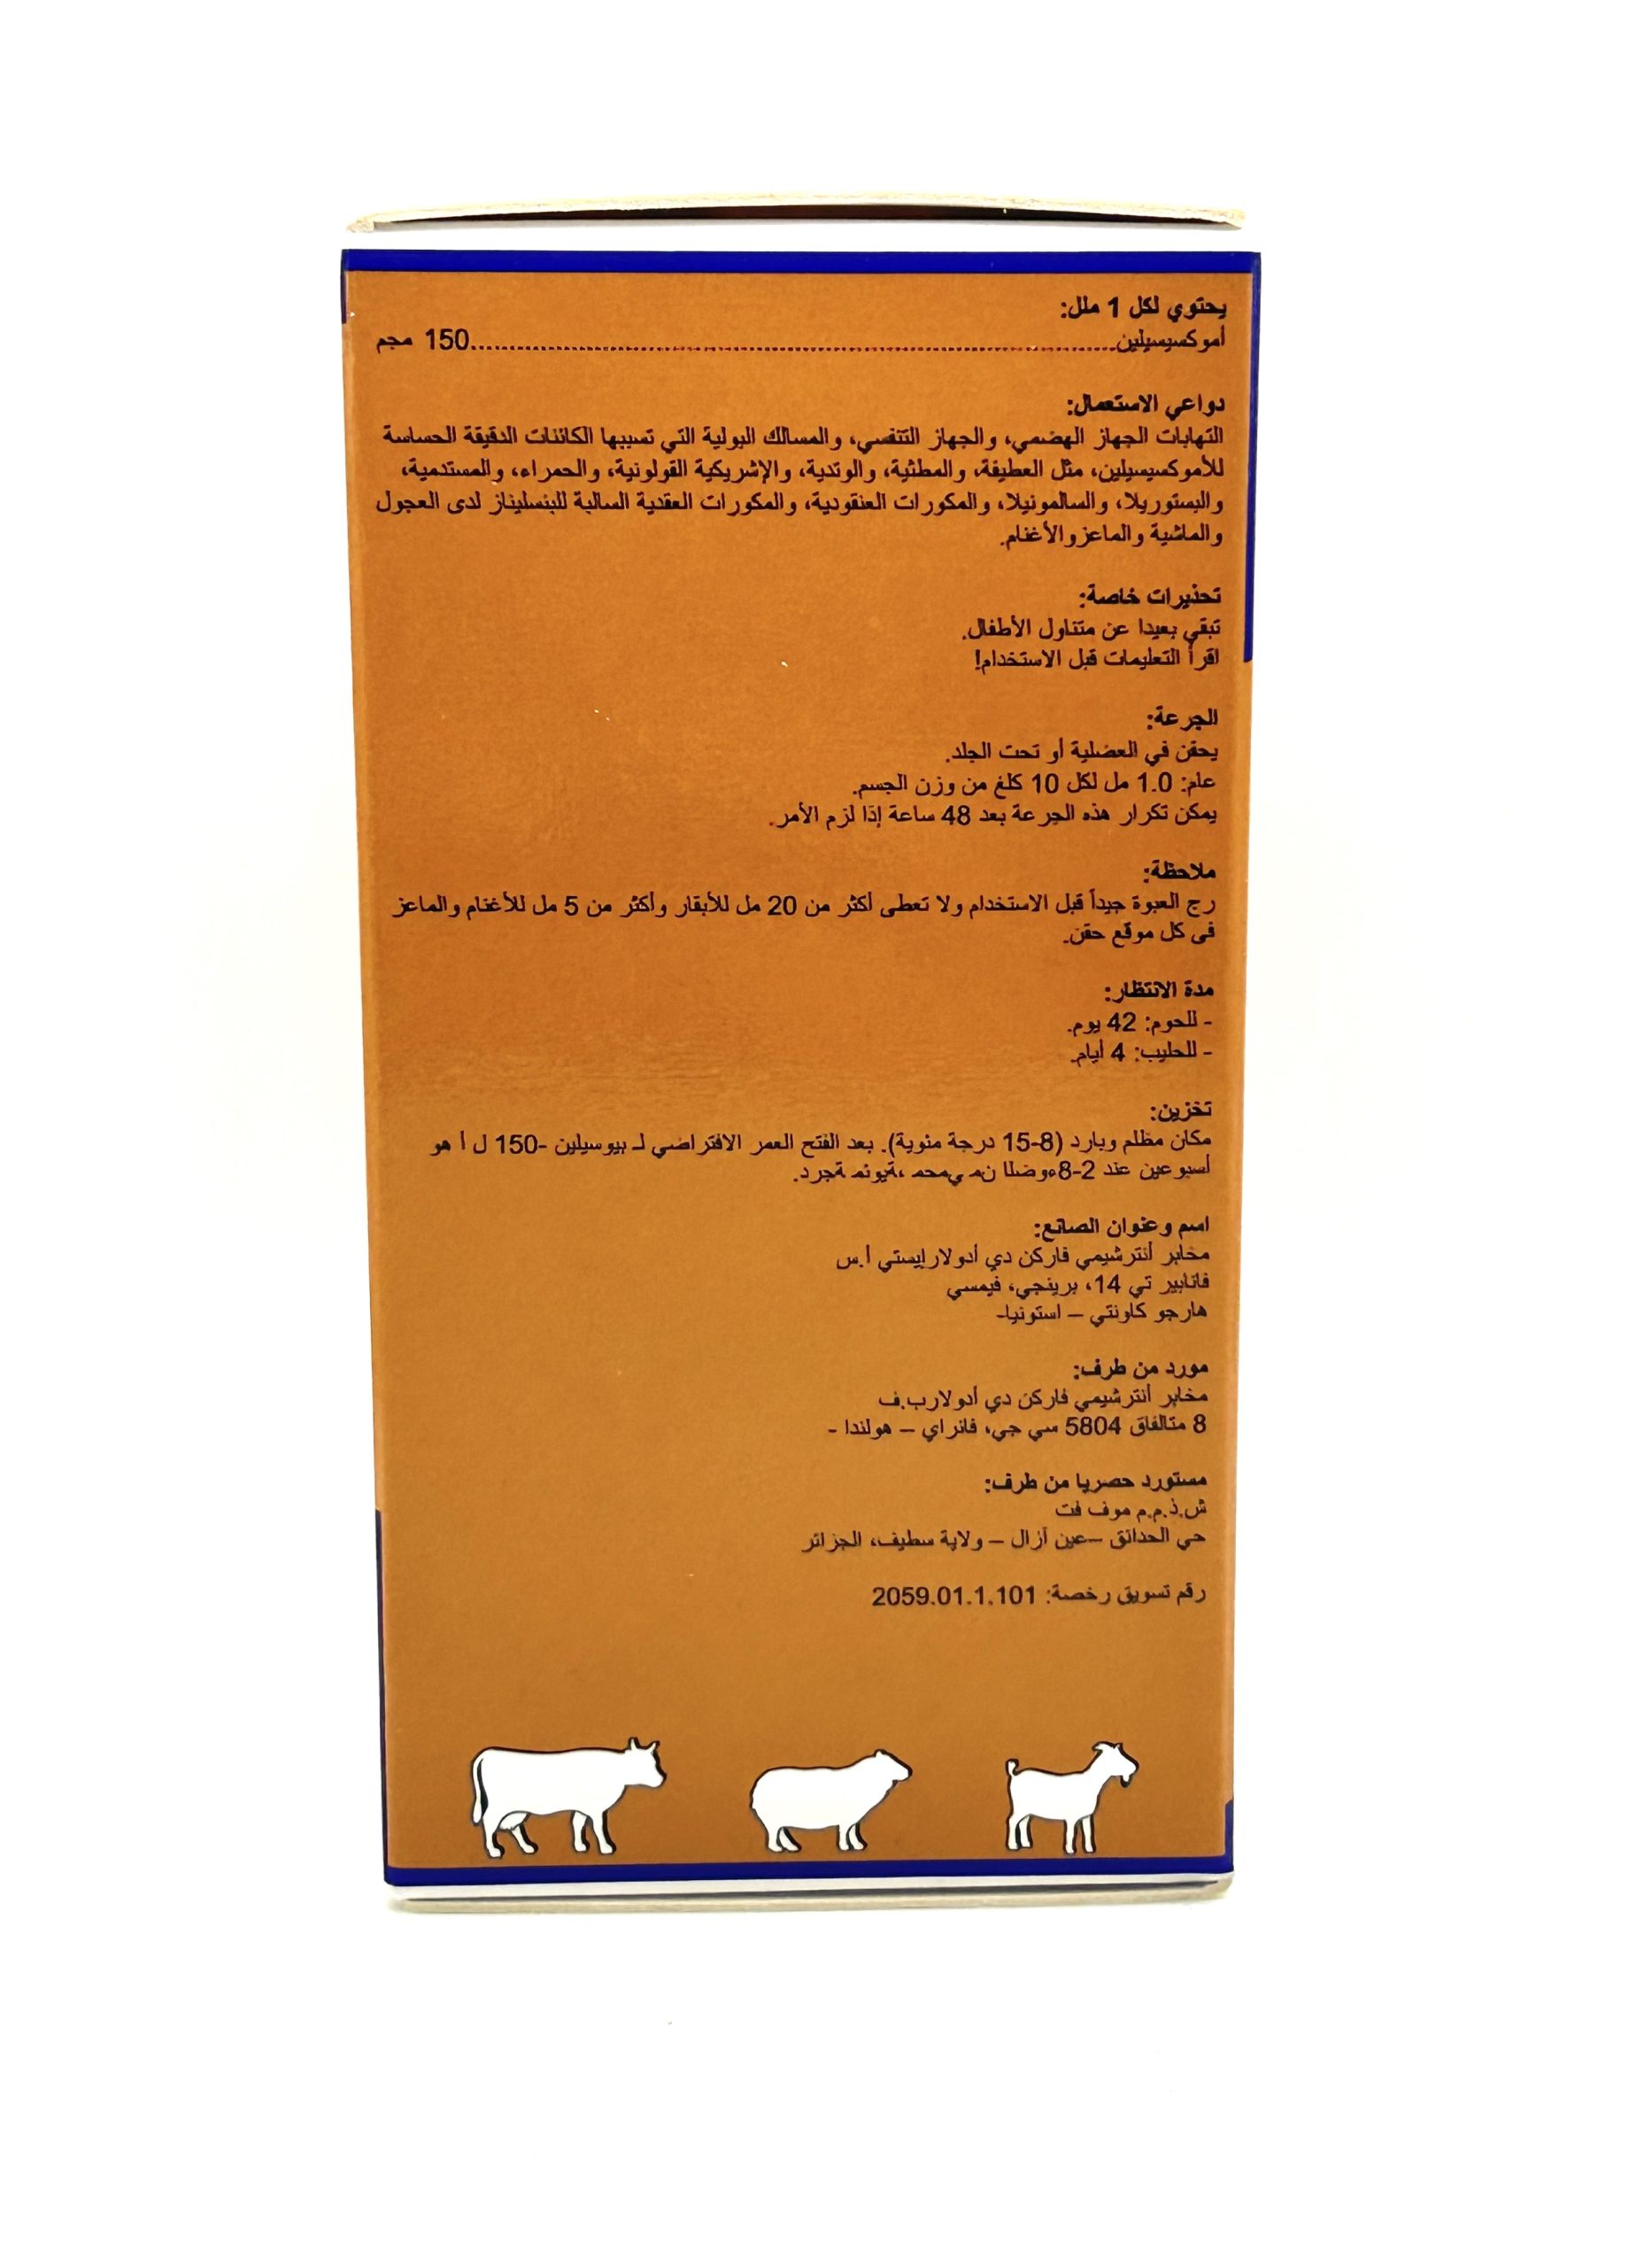 يحتوي لكل 1 ملل:
أموكسيسيلين......................................................150 مجم
دواعي الاستعمال:
التهابات الجهاز الهضمي، والجهاز التنفسي، والمسالك البولية التي تسببها الكائنات الدقيقة الحساسة
للأموكسيسيلين، مثل العطيفة، والمطثية، والوتدية، والإشريكية القولونية، والحمراء، والمستدمية،
والبستوريلا، والسالمونيلا، والمكورات العنقودية، والمكورات العقدية السالبة للبنسليناز لدى العجول
والماشية والماعزوالأغنام.
تحذيرات خاصة:
تبقي بعيدا عن متناول الأطفال.
اقرأ التعليمات قبل الاستخدام!
الجرعة:
يحقن في العضلية أو تحت الجلد.
عام: 1.0 مل لكل 10 كلغ من وزن الجسم.
يمكن تكرار هذه الجرعة بعد 48 ساعة إذا لزم الأمر.
ملاحظة:
رج العبوة جيداً قبل الاستخدام ولا تعطى أكثر من 20 مل للأبقار وأكثر من 5 مل للأغنام والماعز
فى كل موقع حقن.
مدة الانتظار:
- للحوم: 42 يوم.
- للحليب: 4 أيام.
تخزين:
مكان مظلم وبارد (8-15 درجة مئوية). بعد الفتح العمر الافتراضي لـ بيوسيلين -150 ل ا هو
أسبوعين عند 2-8ءوضلا نم يمحم ،ةيوئم ةجرد.
اسم وعنوان الصانع:
مخابر أنترشيمي فاركن دي أدولارإيستي أ.س
فانابير تي 14، برينجي، فيمسي
هارجو كاونتي – استونيا-
مورد من طرف:
مخابر أنترشيمي فاركن دي أدولارب.ف
8 متالفاق 5804 سي جي، فانراي – هولندا -
مستورد حصريا من طرف:
ش.ذ.م.م موف فت
حي الحدائق –عين أزال – ولاية سطيف، الجزائر
رقم تسويق رخصة: 2059.01.1.101